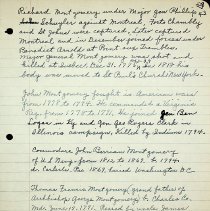 Richard Montgomery under Major Gen Philip
Schuyler against Montreal. Forts Chambly
and St Johns were captured, later captured
Montreal and in December joined forces under
Benedict Arnold at Point aux Trembles.
Major General Montgomery was shot and
killed at Quebec, Dec. 31, 1775, In 1818 his
body was moved to St Paul's Church, New York.
John Montgomery fought in American
1778 to 1784. He commanded a Virginia
Reg. from 1778 to 1781. He joined Gen
Logan in Ky and Gen Geo Rogers Clark in
Illinois campaign. Killed by Indians 1794.
Commodore John Berrian Montgomery
of U.S. Navy from 1812 to 1869. to 1794
in Carlisle, Pa 1869, buried Washington D.C.
Thomas Francis Montgomery (grand father of
Archbishop George Montgomery) b Charles Co.
Md. June 19, 1771. Raised by uncle James